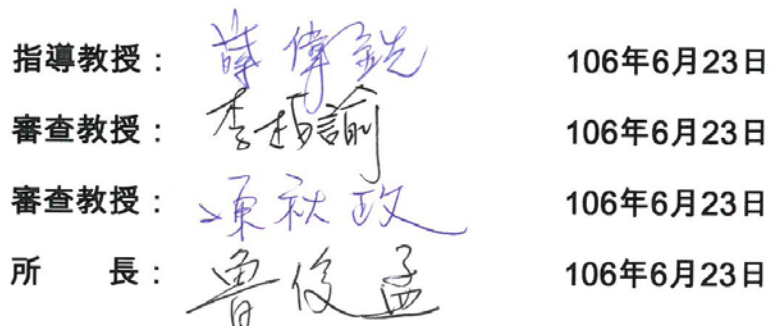 指導教授： 薛偉銑 106年6月23日
審查教授： 李柏諭 106年6月23日
審查教授： 秋政 106年6月23日
所 長： 魯俊孟 106年6月23日